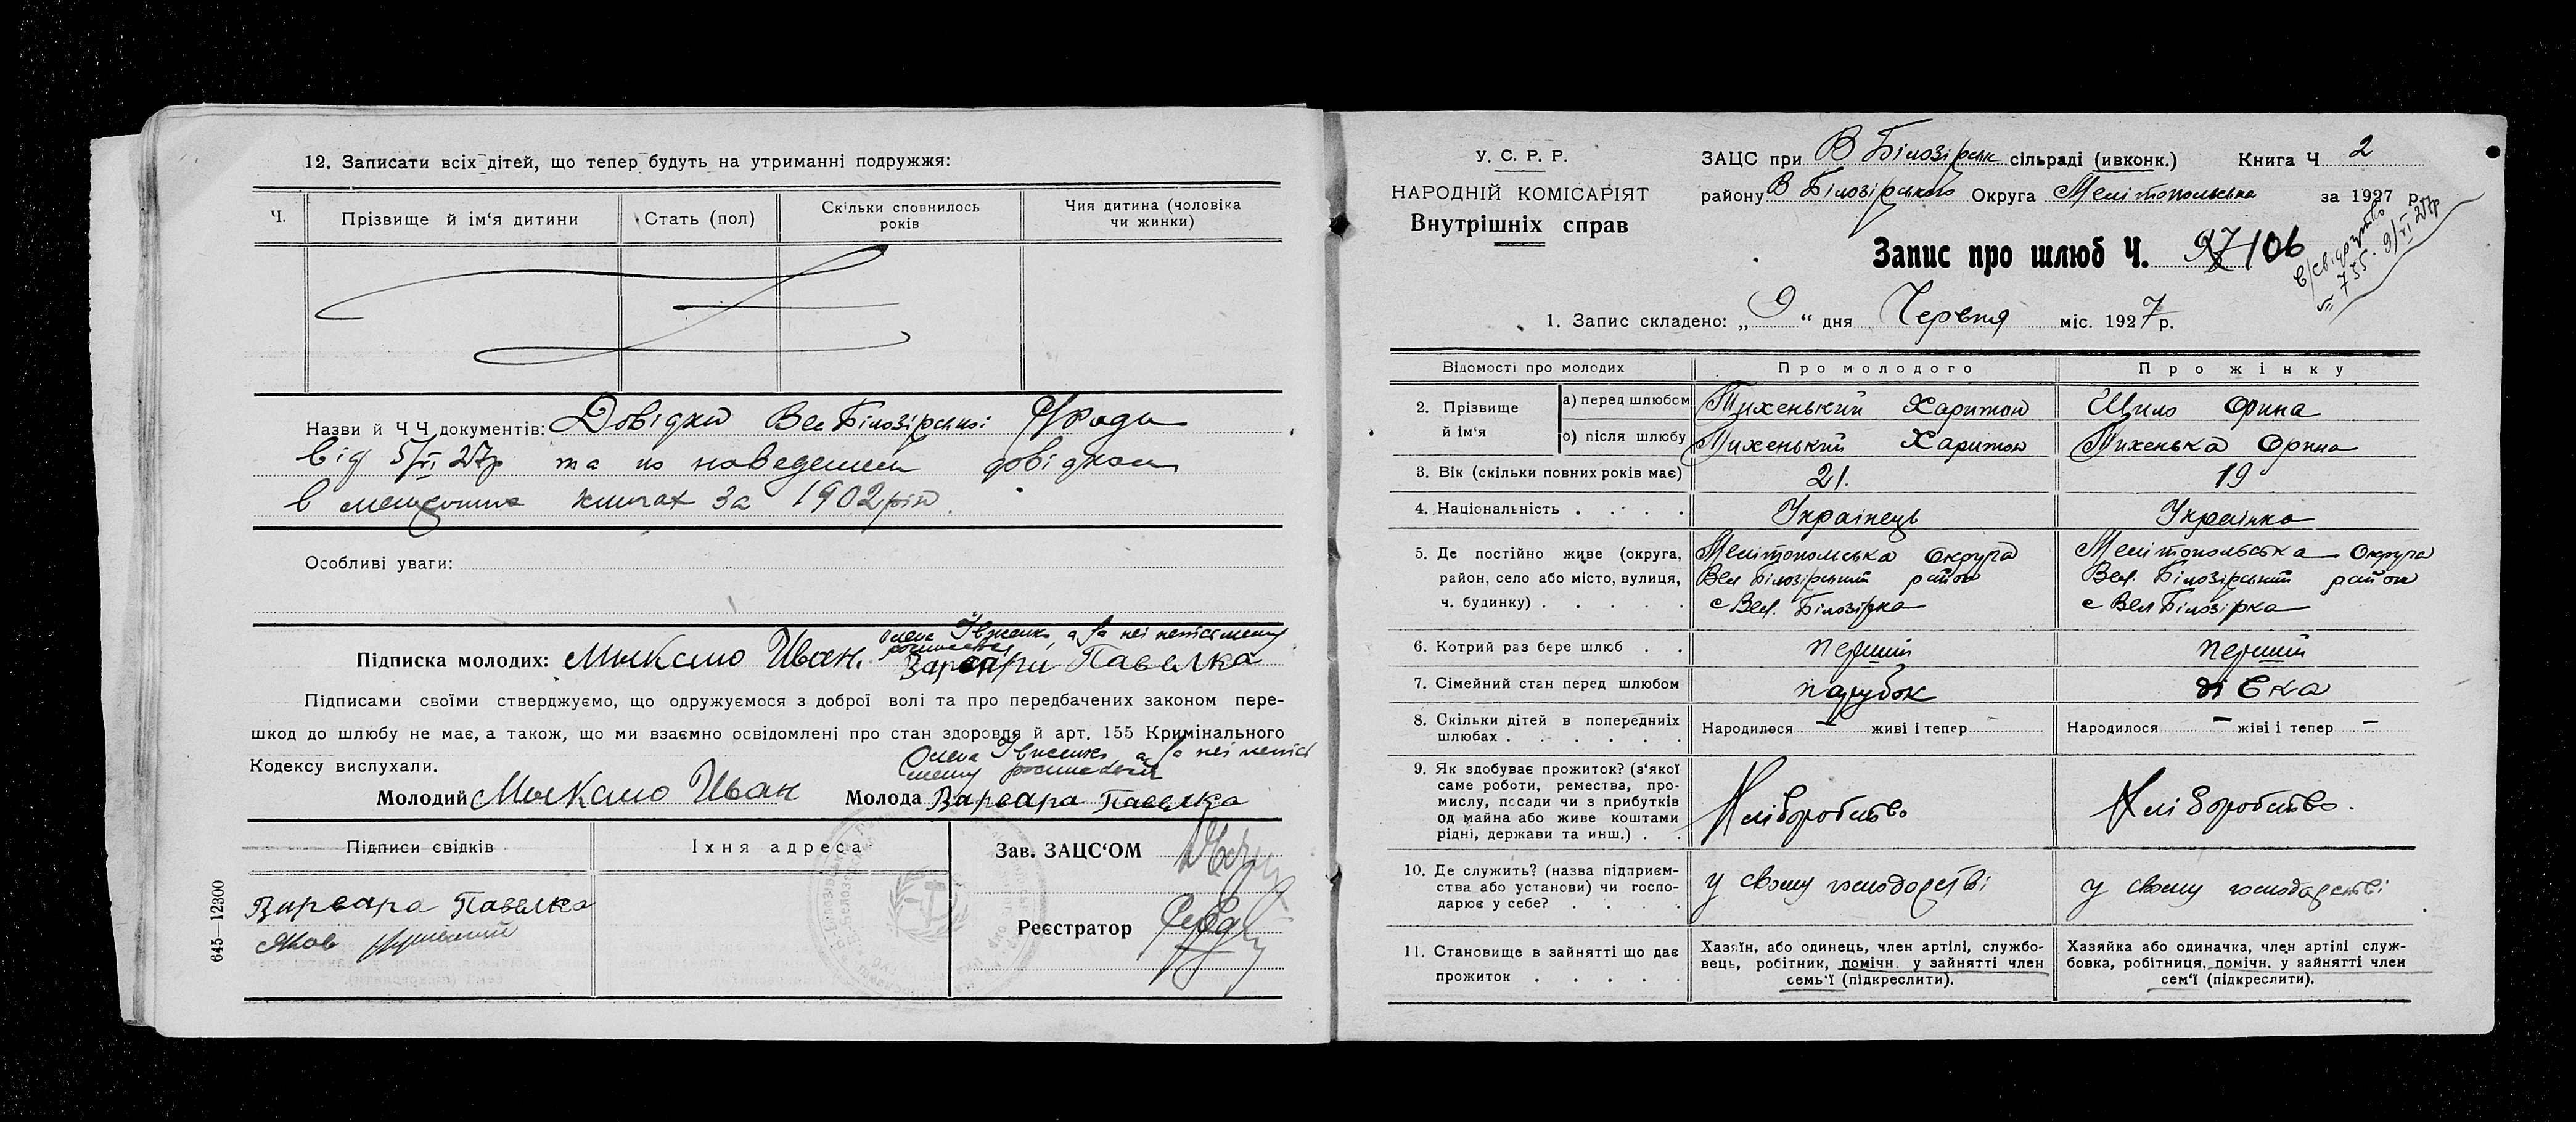 12. Записати всіх дітей, що тепер будуть на утриманні подружжя:
Ч. Прізвище й ім‘я дитини Стать (пол) Скільки сповнилось років Чия дитина (чоловіка чи жинки)
Назви й Ч Ч документів: Довідки Вел Білозірської С/Ради
від 5/VI 27р та по наведеним довідкам
в метричних книгах за 1902 рік.
Особливі уваги:
Олена Івженко, а за неі неписьменну
росписався
Підписка молодих: Микало Иван. Варвари Павелка
Підписами своїми стверджуємо, що одружуємося з доброї волі та про передбачених законом пере-
шкод до шлюбу не має, а також, що ми взаємно освідомлені про стан здоровля й арт. 155 Кримінального
Кодексу вислухали.
Олена Івженко а за неі неписьменну
Молодий Микало Иван Молода Варвара Павелка
Підписи свідків Їхня адреса Зав. ЗАЦС‘ОМ
Варвара Павелка
Яков
Реєстратор
645—12300
У. С. Р. Р.
НАРОДНІЙ КОМІСАРІЯТ
Внутрішніх справ
ЗАЦС при В Білозірськ сільраді (ивконк.) Книга Ч 2
району В Білозірського Округа Мелітопольська за 1927 р.
Запис про шлюб Ч. 97 106
В/свідоцтво
735. 9/VI 27р
1. Запис складено: „ 9 “ дня Червня міс. 1927 р.
Відомості про молодих Про молодого Про жінку
2. Прізвище й ім‘я
а) перед шлюбом Тихенький Харитон Шило Орина
о) після шлюбу Тихенький Харитон Тихенька Орина
3. Вік (скільки повних років має) 21. 19
4. Національність Українець Українка
5. Де постійно живе (округа, Мелітопольська округа Мелітопольська округа
район, село або місто, вулиця, Вел Білозірський район Вел. Білозірський район
ч. будинку) с Вел. Білозірка с Вел Білозірка
6. Котрий раз бере шлюб перший перший
7. Сімейний стан перед шлюбом парубок дівка
8. Скільки дітей в попередніх шлюбах Народилося — живі і тепер — Народилося — жіві і тепер —
9. Як здобуває прожиток? (з‘якої
саме роботи, ремества, про-
мислу, посади чи з прибутків
од майна або живе коштами
рідні, держави та инш.) Хліборобство Хліборобство.
10. Де служить? (назва підприєм-
ства або установи) чи госпо-
дарює у себе? у своєму господарстві у своєму господарстві
11. Становище в зайнятті що дає
прожиток
Хазяїн, або одинець, член артілі, службо-
вець, робітник, помічн. у зайнятті член
семь‘ї (підкреслити).
Хазяйка або одиначка, член артілі служ-
бовка, робітниця, помічн. у зайнятті член
сем‘ї (підкреслити).